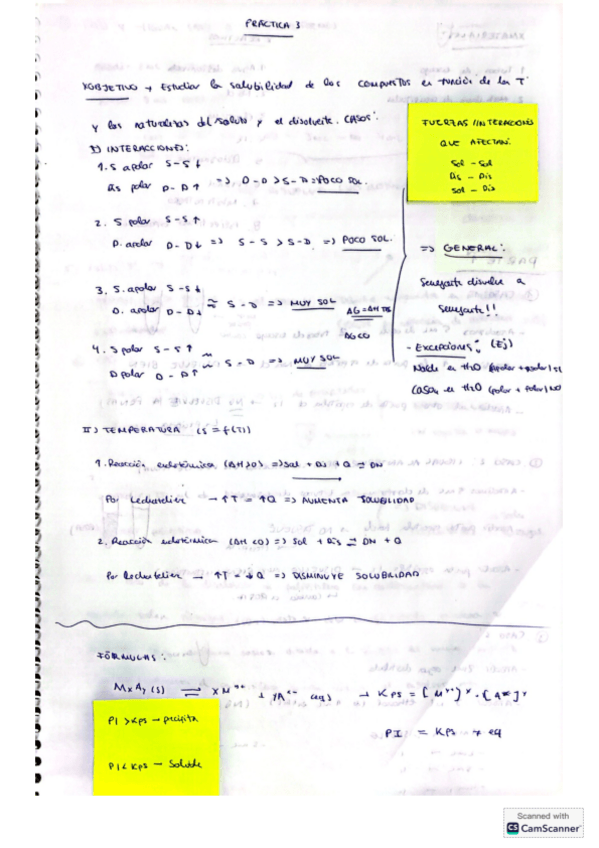 PRÁCTICA 3
*OBJETIVO → Estudiar la solubilidad de los compuestos en función de la T
y las naturalezas del soluto y el disolvente. CASOS:
I) INTERACCIONES:
1. S apolar S-S↓
Dis polar D-D↑ => D-D > S-D => POCO SOL.
2. S. polar S-S↑
D. apolar D-D↓ => S-S > S-D => POCO SOL.
3. S. apolar S-S↓
D. apolar D-D↓ ≈ S-D => MUY SOL
4. S polar S-S↑
D polar D-D↑ ≈ S-D => MUY SOL
FUERZAS/INTERACCIONES
QUE AFECTAN:
Sol - Sol
Dis - Dis
Sol - Dis
=> GENERAL:
Semejante disuelve a
semejante!!
- Excepciones: (Ej)
II) TEMPERATURA (S = f(T))
1. Reacción endotérmica (ΔH>0) => Sol + Dis + Q ⇌ DN
Por Lechatelier → ↑T = ↑Q => AUMENTA SOLUBILIDAD
2. Reacción (ΔH<0) => Sol + Dis ⇌ DN + Q
Por Lechatelier → ↑T = ↓Q => DISMINUYE SOLUBILIDAD
FÓRMULAS:
PI > Kps → precipita
PI = Kps → eq
PI < Kps → Soluble
Scanned with
CS CamScanner